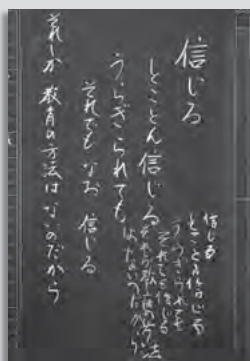 信じる
とことん信じる
うらぎられても
それでもなお 信じる
それしか 教育の方法はないのだから
信じる
とことん信じる
うらぎられても
それでも信じる
それしか教育の方法
はないのだから